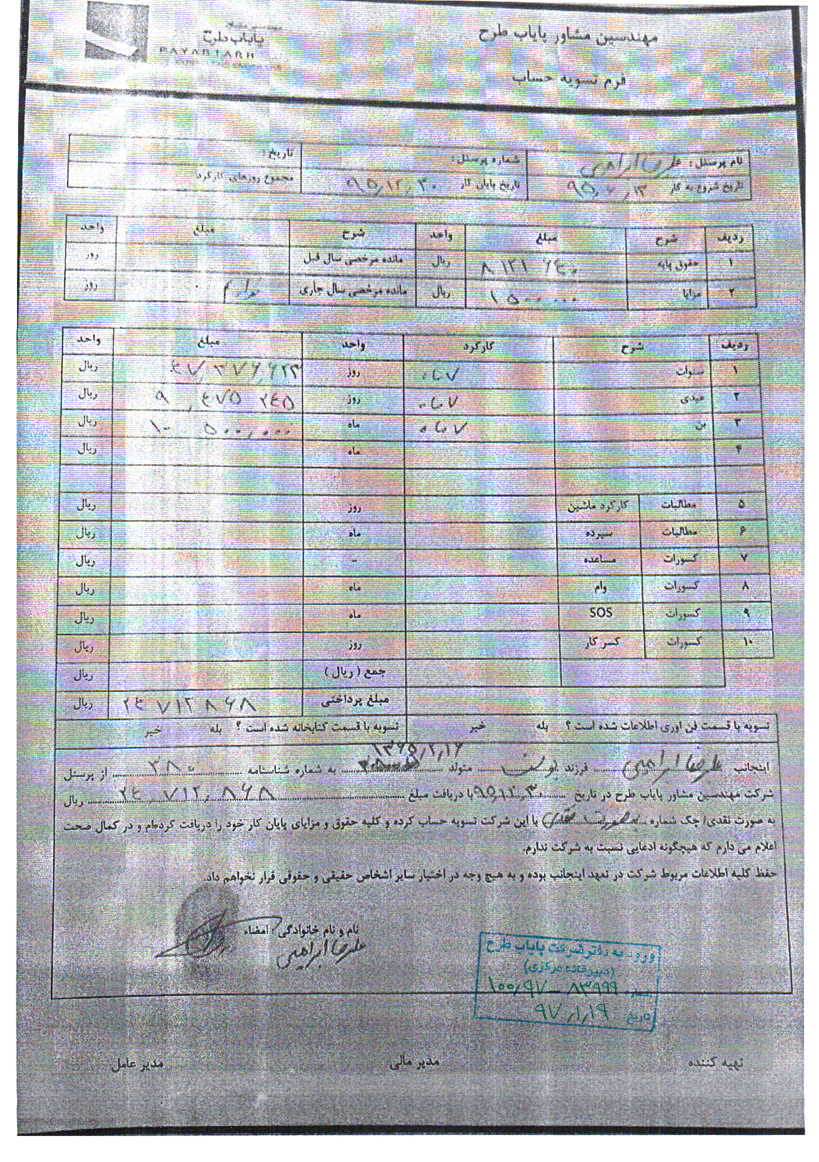 مهندسین مشاور پایاب طرح
پایاب طرح
PAYABTARH
فرم تسویه حساب
نام پرسنل : علیرضا ابراهیمی شماره پرسنل : تاریخ :
تاریخ شروع به کار ۹۵,۶,۱۳ تاریخ پایان کار ۹۵,۱۲,۳۰ مجموع روزهای کارکرد
ردیف شرح مبلغ واحد شرح مبلغ واحد
۱ حقوق پایه ۸ ۱۲۱ ۶۴۰ ریال مانده مرخصی سال قبل روز
۲ مزایا ۱۵۰۰۰۰۰ ریال مانده مرخصی سال جاری ندارم روز
ردیف شرح کارکرد واحد مبلغ واحد
۱ سنوات ۷ ماه روز ریال
۲ عیدی ۷ ماه روز ۹ ۴۷۵ ۲۴۵ ریال
۳ بن ۷ ماه ماه ۱۰ ۵۰۰,۰۰۰ ریال
۴ ماه ریال
۵ مطالبات کارکرد ماشین روز ریال
۶ مطالبات سپرده ماه ریال
۷ کسورات مساعده - ریال
۸ کسورات وام ماه ریال
۹ کسورات SOS ماه ریال
۱۰ کسورات کسر کار روز ریال
جمع ( ریال ) ریال
مبلغ پرداختی ۲۴ ۷۱۲ ۸۶۸ ریال
تسویه با قسمت فن آوری اطلاعات شده است ؟ بله خیر تسویه با قسمت کتابخانه شده است ؟ بله خیر
۱۳۶۵,۲,۱۶
اینجانب علیرضا ابراهیمی فرزند یوسف متولد به شماره شناسنامه ۳۸۰ از پرسنل
شرکت مهندسین مشاور پایاب طرح در تاریخ ۹۵,۱۲,۳۰ با دریافت مبلغ ۲۴,۷۱۲,۸۶۸ ریال
به صورت نقدی/ چک شماره بصورت نقدی با این شرکت تسویه حساب کرده و کلیه حقوق و مزایای پایان کار خود را دریافت کرده‌ام و در کمال صحت
اعلام می دارم که هیچگونه ادعایی نسبت به شرکت ندارم.
حفظ کلیه اطلاعات مربوط شرکت در تعهد اینجانب بوده و به هیچ وجه در اختیار سایر اشخاص حقیقی و حقوقی قرار نخواهم داد.
نام و نام خانوادگی : امضاء
علیرضا ابراهیمی
ورود به دفتر شرکت پایاب طرح
(دبیرخانه مرکزی)
شماره: ۱۰۰,۹۷ - ۸۳۹۹۹
تاریخ: ۹۷,۱,۱۹
تهیه کننده مدیر مالی مدیر عامل